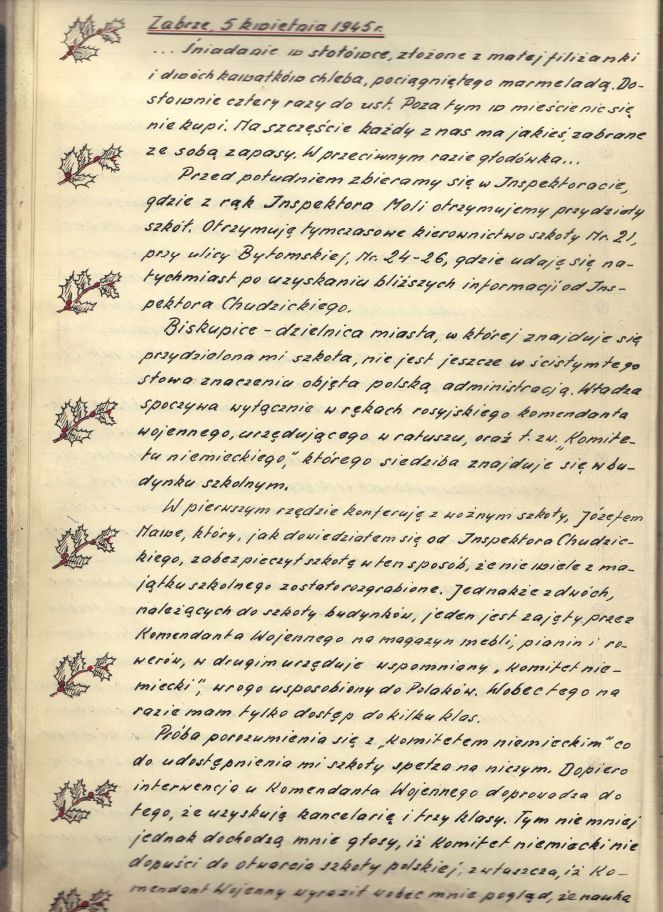 Zabrze, 5 kwietnia 1945 r.
... Śniadanie w stołówce, złożone z małej filiżanki
i dwóch kawałków chleba, pociągniętego marmeladą. Do-
słownie cztery razy do ust. Poza tym w mieście nic się
nie kupi. Na szczęście każdy z nas ma jakieś, zabrane
ze sobą zapasy. W przeciwnym razie głodówka...
Przed południem zbieramy się w Inspektoracie,
gdzie z rąk Inspektora Moli otrzymujemy przydziały
szkół. Otrzymuję tymczasowe kierownictwo szkoły Nr. 21,
przy ulicy Bytomskiej, Nr. 24-26, gdzie udaję się na-
tychmiast po uzyskaniu bliższych informacji od Ins-
pektora Chudzickiego.
Biskupice - dzielnica miasta, w której znajduje się
przydzielona mi szkoła, nie jest jeszcze w ścisłym tego
słowa znaczeniu objęta polską administracją. Władza
spoczywa wyłącznie w rękach rosyjskiego komendanta
wojennego, urzędującego w ratuszu, oraz t. zw. „Komite-
tu niemieckiego," którego siedziba znajduje się w bu-
dynku szkolnym.
W pierwszym rzędzie konferuję z woźnym szkoły, Józefem
Mawe, który, jak dowiedziałem się od Inspektora Chudzic-
kiego, zabezpieczył szkołę w ten sposób, że nie wiele z ma-
jątku szkolnego zostało rozgrabione. Jednakże z dwóch,
należących do szkoły budynków, jeden jest zajęty przez
Komendanta Wojennego na magazyn mebli, pianin i ro-
werów, w drugim urzęduje wspomniany „Komitet nie-
miecki", wrogo usposobiony do Polaków. Wobec tego na
razie mam tylko dostęp do kilku klas.
Próba porozumienia się z „Komitetem niemieckim" co
do udostępnienia mi szkoły spełza na niczym. Dopiero
interwencja u Komendanta Wojennego doprowadza do
tego, że uzyskuję kancelarię i trzy klasy. Tym nie mniej
jednak dochodzą mnie głosy, iż Komitet niemiecki nie
dopuści do otwarcia szkoły polskiej, zwłaszcza, iż Ko-
mendant Wojenny wyraził wobec mnie pogląd, że nauka